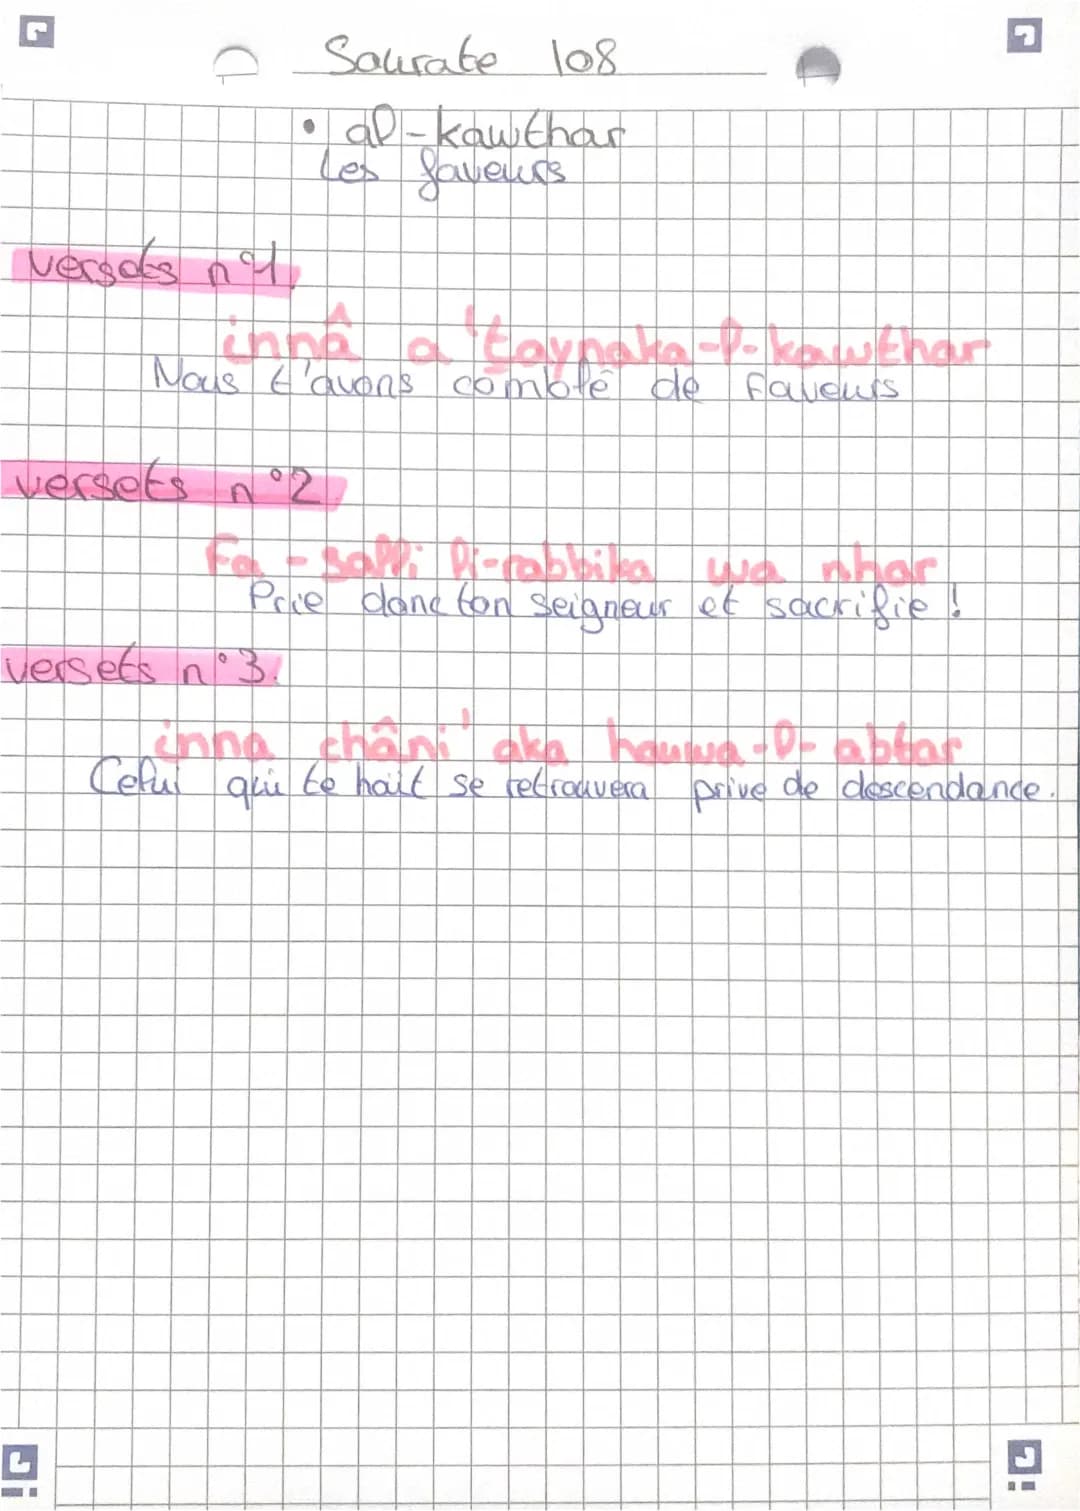 Sourate 108
• al-kawthar
Les faveurs
versets n°1.
innâ a'taynaka-l-kawthar
Nous t'avons comblé de faveurs
versets n°2
Fa-salli li-rabbika wa nhar
Prie donc ton seigneur et sacrifie !
versets n°3.
inna châni'aka houwa-l-abtar
Celui qui te hait se retrouvera prive de descendance.